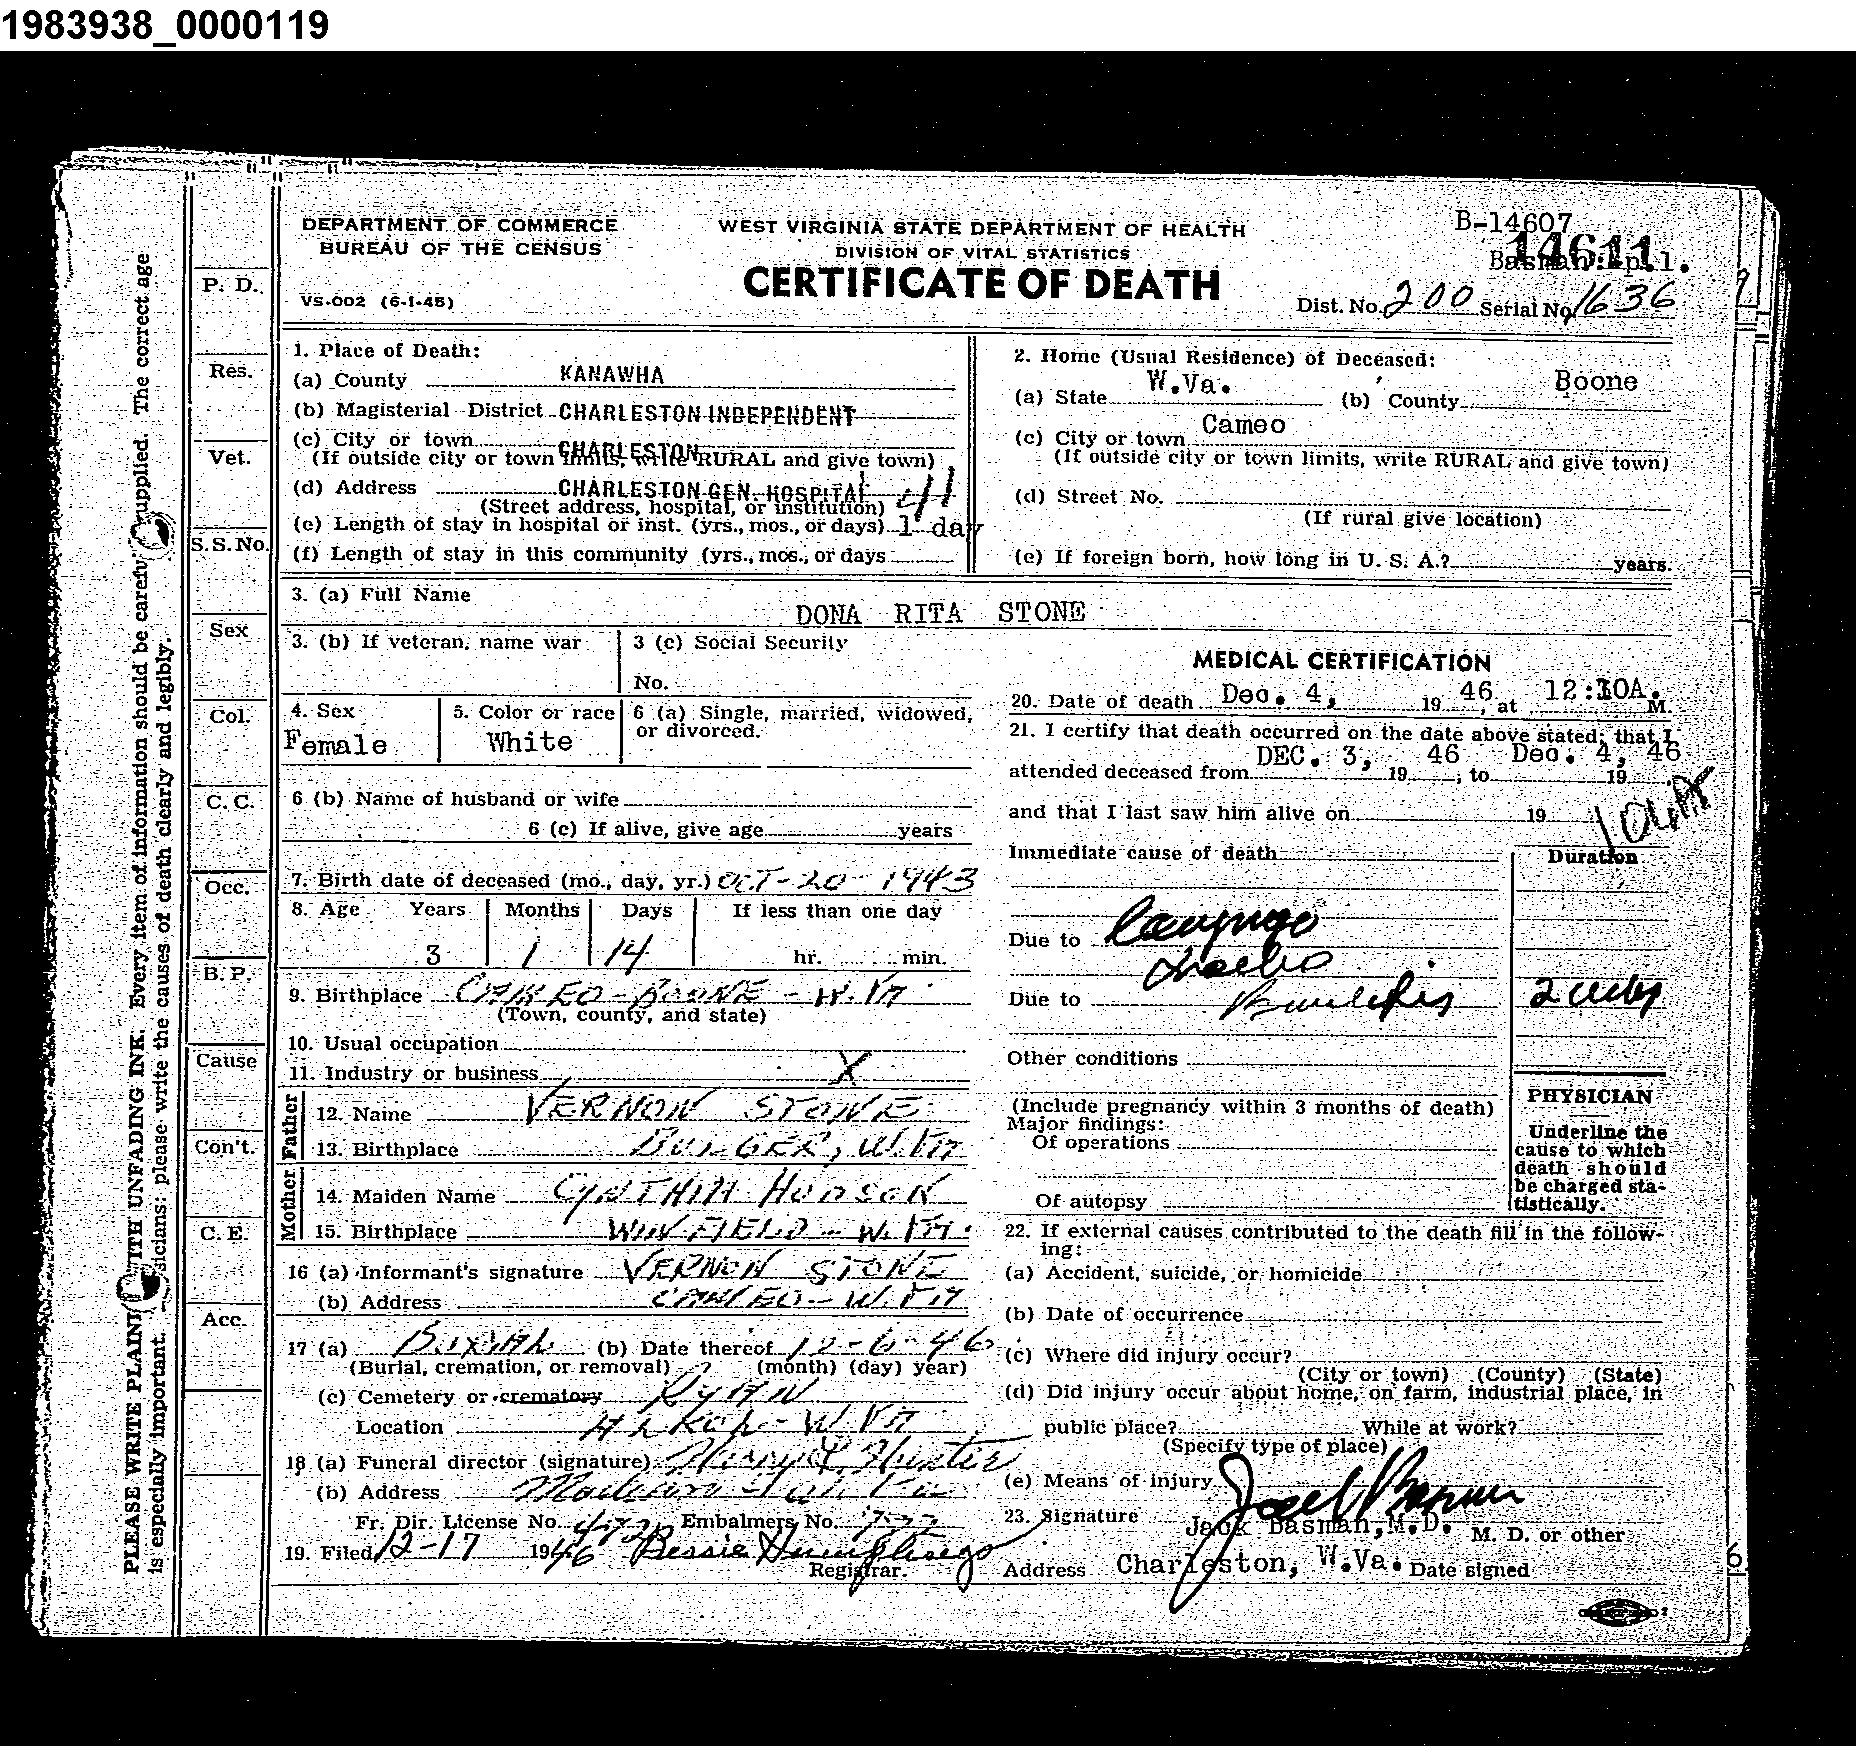 1983938_0000119
DEPARTMENT OF COMMERCE
BUREAU OF THE CENSUS
VS-002 (6-1-45)
WEST VIRGINIA STATE DEPARTMENT OF HEALTH
DIVISION OF VITAL STATISTICS
CERTIFICATE OF DEATH
B-14607
14611
Dist. No. 200 Serial No. 1636
PLEASE WRITE PLAINLY WITH UNFADING INK. Every item of information should be carefully supplied. The correct age
is especially important. Physicians: please write the causes of death clearly and legibly.
P. D.
Res.
Vet.
S. S. No.
Sex
Col.
C. C.
Occ.
B. P.
Cause
Con't.
C. E.
Acc.
1. Place of Death:
(a) County KANAWHA
(b) Magisterial District CHARLESTON INDEPENDENT
(c) City or town CHARLESTON
(If outside city or town limits, write RURAL and give town)
(d) Address CHARLESTON GEN. HOSPITAL 41
(Street address, hospital, or institution)
(e) Length of stay in hospital or inst. (yrs., mos., or days) 1 day
(f) Length of stay in this community (yrs., mos., or days
2. Home (Usual Residence) of Deceased:
(a) State W.Va. (b) County Boone
(c) City or town Cameo
(If outside city or town limits, write RURAL and give town)
(d) Street No.
(If rural give location)
(e) If foreign born, how long in U. S. A.? years.
3. (a) Full Name DONA RITA STONE
3. (b) If veteran, name war
3 (c) Social Security
No.
4. Sex Female
5. Color or race White
6 (a) Single, married, widowed,
or divorced.
6 (b) Name of husband or wife
6 (c) If alive, give age years
7. Birth date of deceased (mo., day, yr.) OCT-20-1943
8. Age Years Months Days If less than one day
3 1 14 hr. min.
9. Birthplace CAMEO-BOONE-W.VA.
(Town, county, and state)
10. Usual occupation
11. Industry or business X
Father
12. Name VERNON STONE
13. Birthplace BULGER, W.VA
Mother
14. Maiden Name CYNTHIA HUDSON
15. Birthplace WINFIELD-W.VA.
16 (a) Informant's signature VERNON STONE
(b) Address CAMEO-W.VA
17 (a) BURIAL (b) Date thereof 12-6-46
(Burial, cremation, or removal) (month) (day) year)
(c) Cemetery or crematory RYAN
Location ALKOL-W.VA
18 (a) Funeral director (signature) Hunter
(b) Address Madison
Fr. Dir. License No. 472 Embalmers No. 777
19. Filed 12-17 1946 Bessie Humphreys
Registrar.
MEDICAL CERTIFICATION
20. Date of death Dec. 4, 19 46, at 12:10A. M.
21. I certify that death occurred on the date above stated; that I
attended deceased from DEC. 3, 19 46, to Dec. 4, 19 46
and that I last saw him alive on 19
Immediate cause of death Duration
Due to Laryngo
tracheo
Due to Bronchitis
Other conditions
(Include pregnancy within 3 months of death)
Major findings:
Of operations
Of autopsy
PHYSICIAN
Underline the
cause to which
death should
be charged sta-
tistically.
22. If external causes contributed to the death fill in the follow-
ing:
(a) Accident, suicide, or homicide
(b) Date of occurrence
(c) Where did injury occur?
(City or town) (County) (State)
(d) Did injury occur about home, on farm, industrial place, in
public place? While at work?
(Specify type of place)
(e) Means of injury
23. Signature Jack Basman
Jack Basman, M.D. M. D. or other
Address Charleston, W.Va. Date signed
6